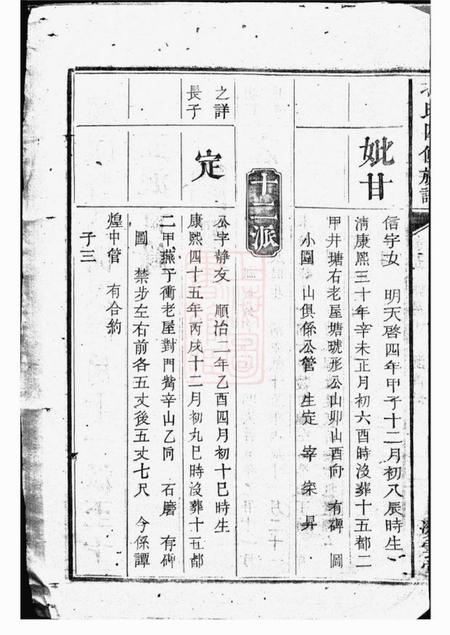 氏四修族譜
妣甘
信字女 明天啓四年甲子十二月初八辰時生
清康熙三十年辛未正月初六酉時沒葬十五都二
甲井塘右老屋塘虎形公山卯山酉向 有碑 圖
小圖 山俱係公管 生定 宰 寀 昇
十三派
之詳
長子
定
公字静友 順治二年乙酉四月初十巳時生
康熙四十五年丙戌十二月初九巳時沒葬十五都
二甲燕子衝老屋對門觜辛山乙向 石磨 存碑
圖 禁步左右前各五丈後五丈七尺 今係譚
煌中管 有合約
子三